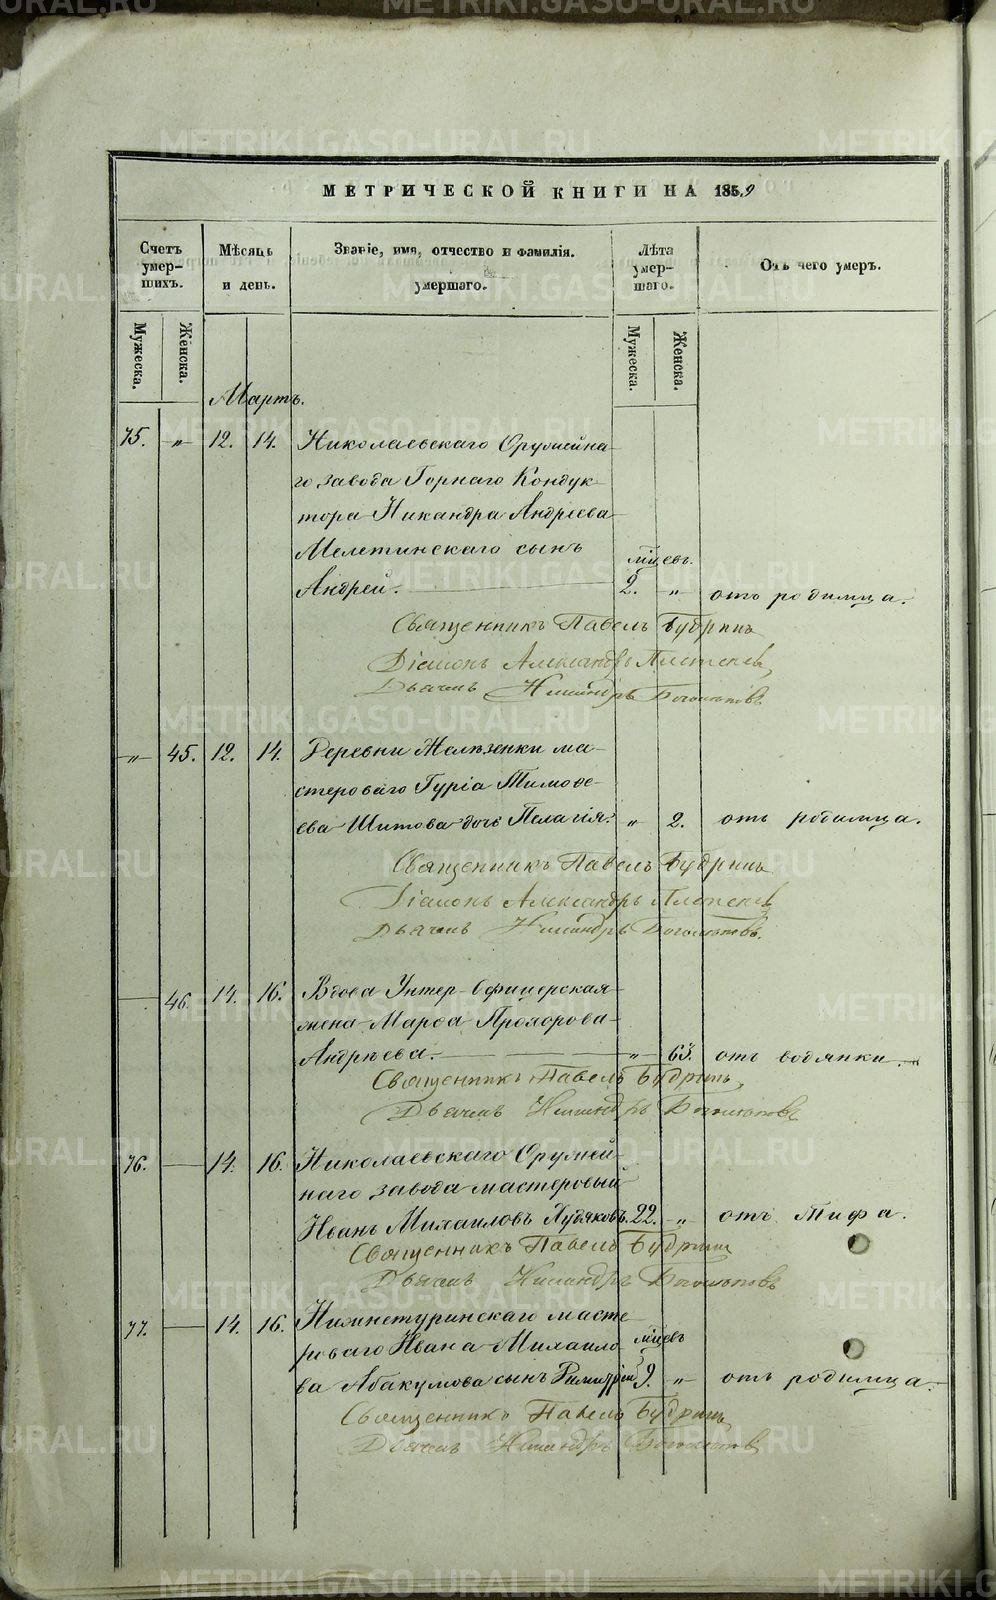 МЕТРИЧЕСКОЙ КНИГИ НА 1859
Счетъ умер-шихъ.
Мѣсяцъ и день.
Званіе, имя, отчество и фамилія. умершаго.
Лѣта умер-шаго.
Отъ чего умеръ.
Мужеска. Женска. Мужеска. Женска.
Мартъ.
75. „ 12. 14. Николаевскаго Оружейна-
го завода Горнаго Кондук-
тора Никандра Андреева
Мелетинскаго сынъ мѣсцевъ.
Андрей. 2. „ отъ родимца.
Священникъ Павелъ Будринъ
Діаконъ Александръ
Дьячекъ Никандръ
„ 45. 12. 14. Деревни Желѣзенки ма-
стероваго Гурія Тимоѳе-
ева Шитова дочь Пелагія. „ 2. отъ родимца.
Священникъ Павелъ Будринъ
Діаконъ Александръ
Дьячекъ Никандръ
46. 14. 16. Вдова Унтер-Офицерская
жена Марѳа Прохорова
Андрѣева. „ 63. отъ водянки.
Священникъ Павелъ Будринъ
Дьячекъ Никандръ
76. 14. 16. Николаевскаго Оружей-
наго завода мастеровый
Иванъ Михаиловъ Худяковъ. 22. „ отъ Тифа.
Священникъ Павелъ Будринъ
Дьячекъ Никандръ
77. 14. 16. Нижнетуринскаго масте-
роваго Ивана Михаило- мѣсцевъ
ва Абакумова сынъ Димитрій 9. „ отъ родимца.
Священникъ Павелъ Будринъ
Дьячекъ Никандръ
METRIKI.GASO-URAL.RU